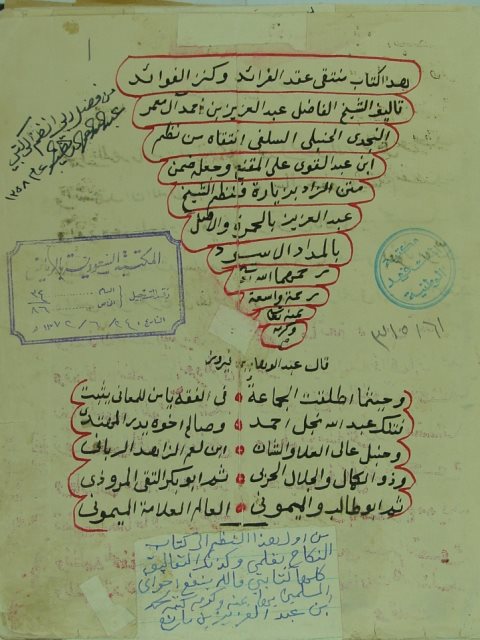 هذا كتاب منتقى عقد الفرائد وكنز الفوائد
تاليف الشيخ الفاضل عبد العزيز بن احمد ال معمر
النجدي الحنبلي السلفي انتقاه من نظم
ابن عبد القوي على المقنع وجعله ضمن
متن الزاد بزيادة فنظم الشيخ
عبد العزيز بالحمرة والاصل
بالمداد الاسود
رحمهما الله
رحمة واسعة
بمنه
وكرمه
من فضل
١٣٥٨
المكتبة السعودية بالرياض
٣٤
٨٦
مكتبة
الوطنية
قال عبد الوهاب بن فيروز
وحيثما اطلقت الجماعة في الفقه يا من للمعاني يثبت
فتلك عبد الله نجل احمد وصالح اخوه بدر المهتدي
وحنبل عالي العلا والشان ابن لعم الزاهد الرباني
وذو الكمال والجلال الحربي ثم ابو بكر التقي المروذي
ثم ابو طالب والميموني العالم العلامة الميموني
من اول هذا النظم الى كتاب
النكاح بقلمي وكذلك التعاليق
كلها كتابتي فالله ينفع اخواني
المسلمين
بن عبد العزيز